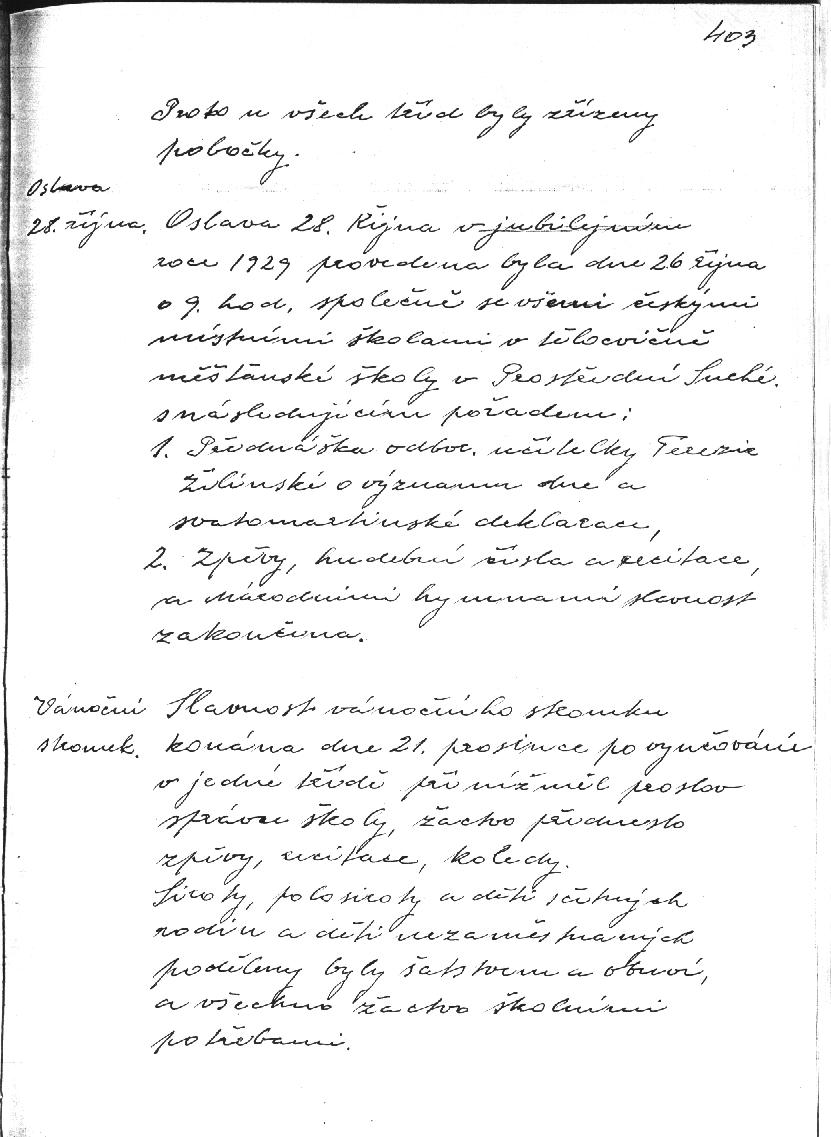 403
Proto u všech tříd byly zřízeny
pobočky.
Oslava
28. října.
Oslava 28. Října v jubilejním
roce 1929 provedena byla dne 26 října
o 9. hod. společně se všemi českými
místními školami v tělocvičně
měšťanské školy v Prostřední Suché.
s následujícím pořadem:
1. Přednáška odbor. učitelky Terezie
Žilinské o významu dne a
svatomartinské deklarace,
2. Zpěvy, hudební čísla a recitace,
a Národními hymnami slavnost
zakončena.
Vánoční
stromek.
Slavnost vánočního stromku
konána dne 21. prosince po vyučování
v jedné třídě při níž měl proslov
správce školy, žactvo předneslo
zpěvy, recitace, koledy.
Siroty, polosiroty a děti četných
rodin a děti nezaměstnaných
poděleny byly šatstvem a obuví,
a všechno žactvo školními
potřebami.